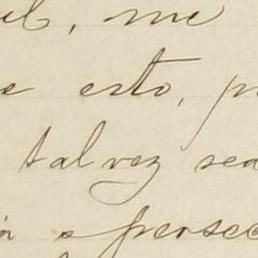 , me
e esto, p
talvez sea
persec